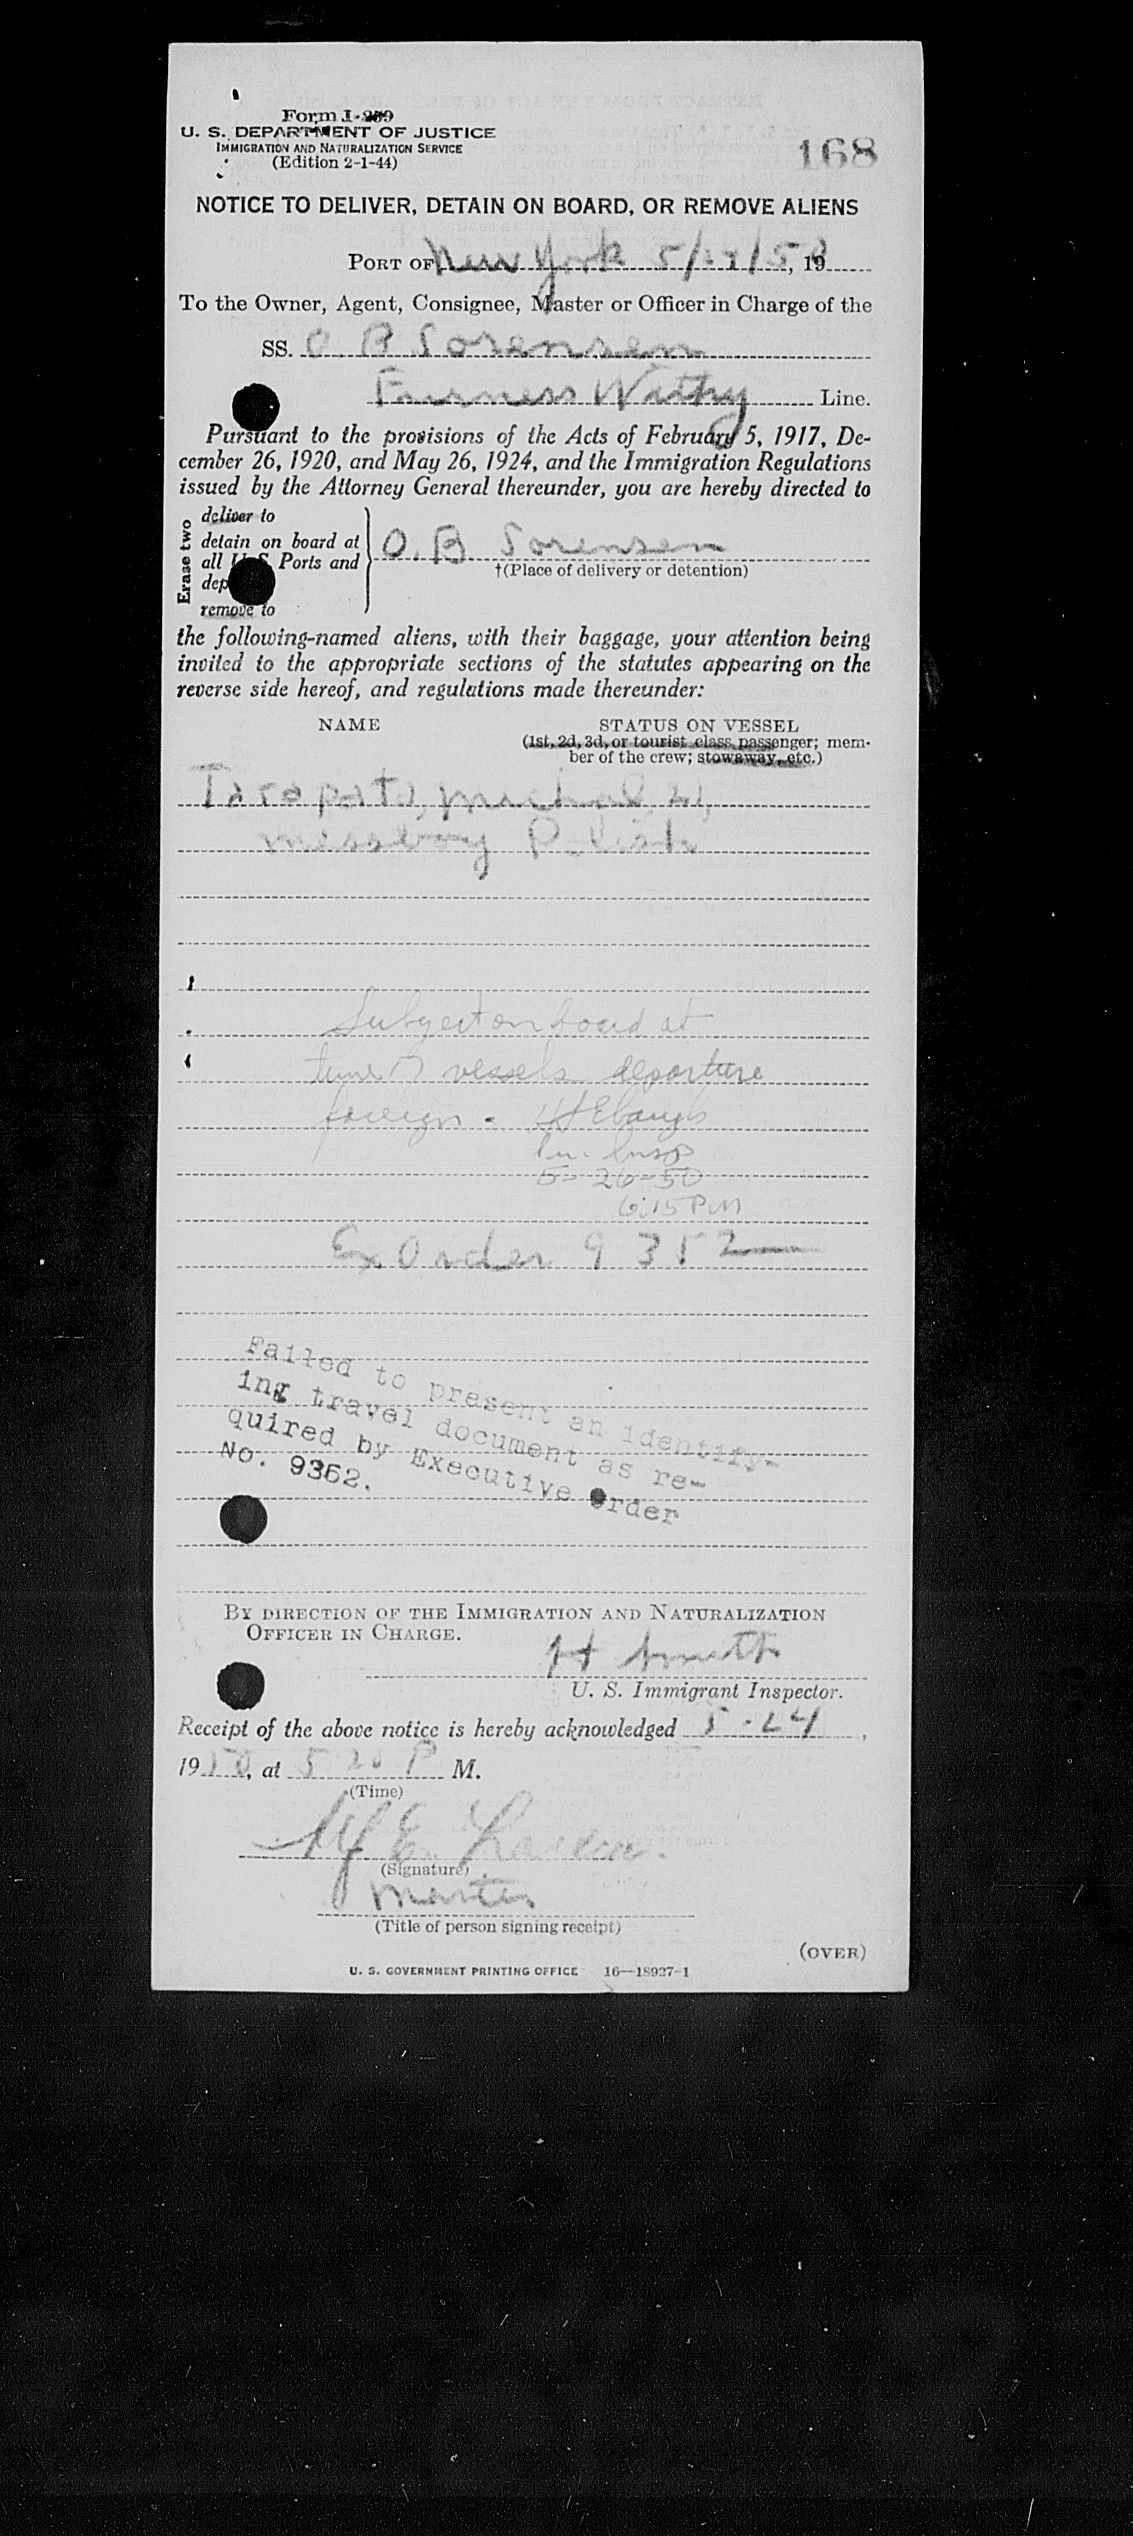 Form I-259
U. S. DEPARTMENT OF JUSTICE
IMMIGRATION AND NATURALIZATION SERVICE
(Edition 2-1-44)
168
NOTICE TO DELIVER, DETAIN ON BOARD, OR REMOVE ALIENS
PORT OF New York 5/24/50, 19
To the Owner, Agent, Consignee, Master or Officer in Charge of the
SS. O. B Sorensen
Furness Withy Line.
Pursuant to the provisions of the Acts of February 5, 1917, De-
cember 26, 1920, and May 26, 1924, and the Immigration Regulations
issued by the Attorney General thereunder, you are hereby directed to
Erase two
deliver to
detain on board at
all U.S. Ports and
dep
remove to
O. B Sorensen
†(Place of delivery or detention)
the following-named aliens, with their baggage, your attention being
invited to the appropriate sections of the statutes appearing on the
reverse side hereof, and regulations made thereunder:
NAME
STATUS ON VESSEL
(1st, 2d, 3d, or tourist class passenger; mem-
ber of the crew; stowaway, etc.)
Tarapata, Michal, 21,
messboy Polish
Subject on board at
time of vessels departure
foreign - H Ebaugh
Im. Insp
5-26-50
6:15 PM
Ex Order 9352
Failed to present an identify-
ing travel document as re-
quired by Executive Order
No. 9352.
BY DIRECTION OF THE IMMIGRATION AND NATURALIZATION
OFFICER IN CHARGE.
H Smith
U. S. Immigrant Inspector.
Receipt of the above notice is hereby acknowledged 5-24,
1950, at 5 20 P M.
(Time)
E. Larsen.
(Signature)
Master
(Title of person signing receipt)
(OVER)
U. S. GOVERNMENT PRINTING OFFICE 16—18927-1